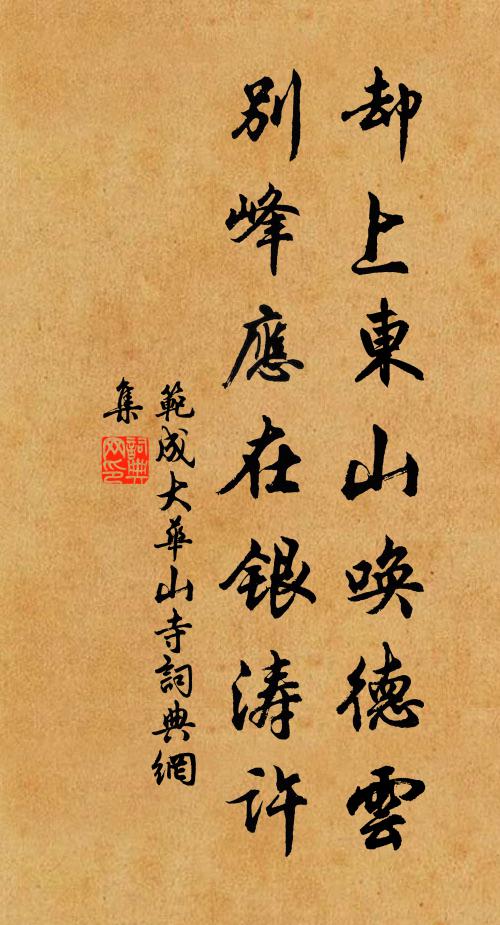 却上東山喚德雲
別峰應在銀濤許
範成大華山寺詞典網
集
詞典網印